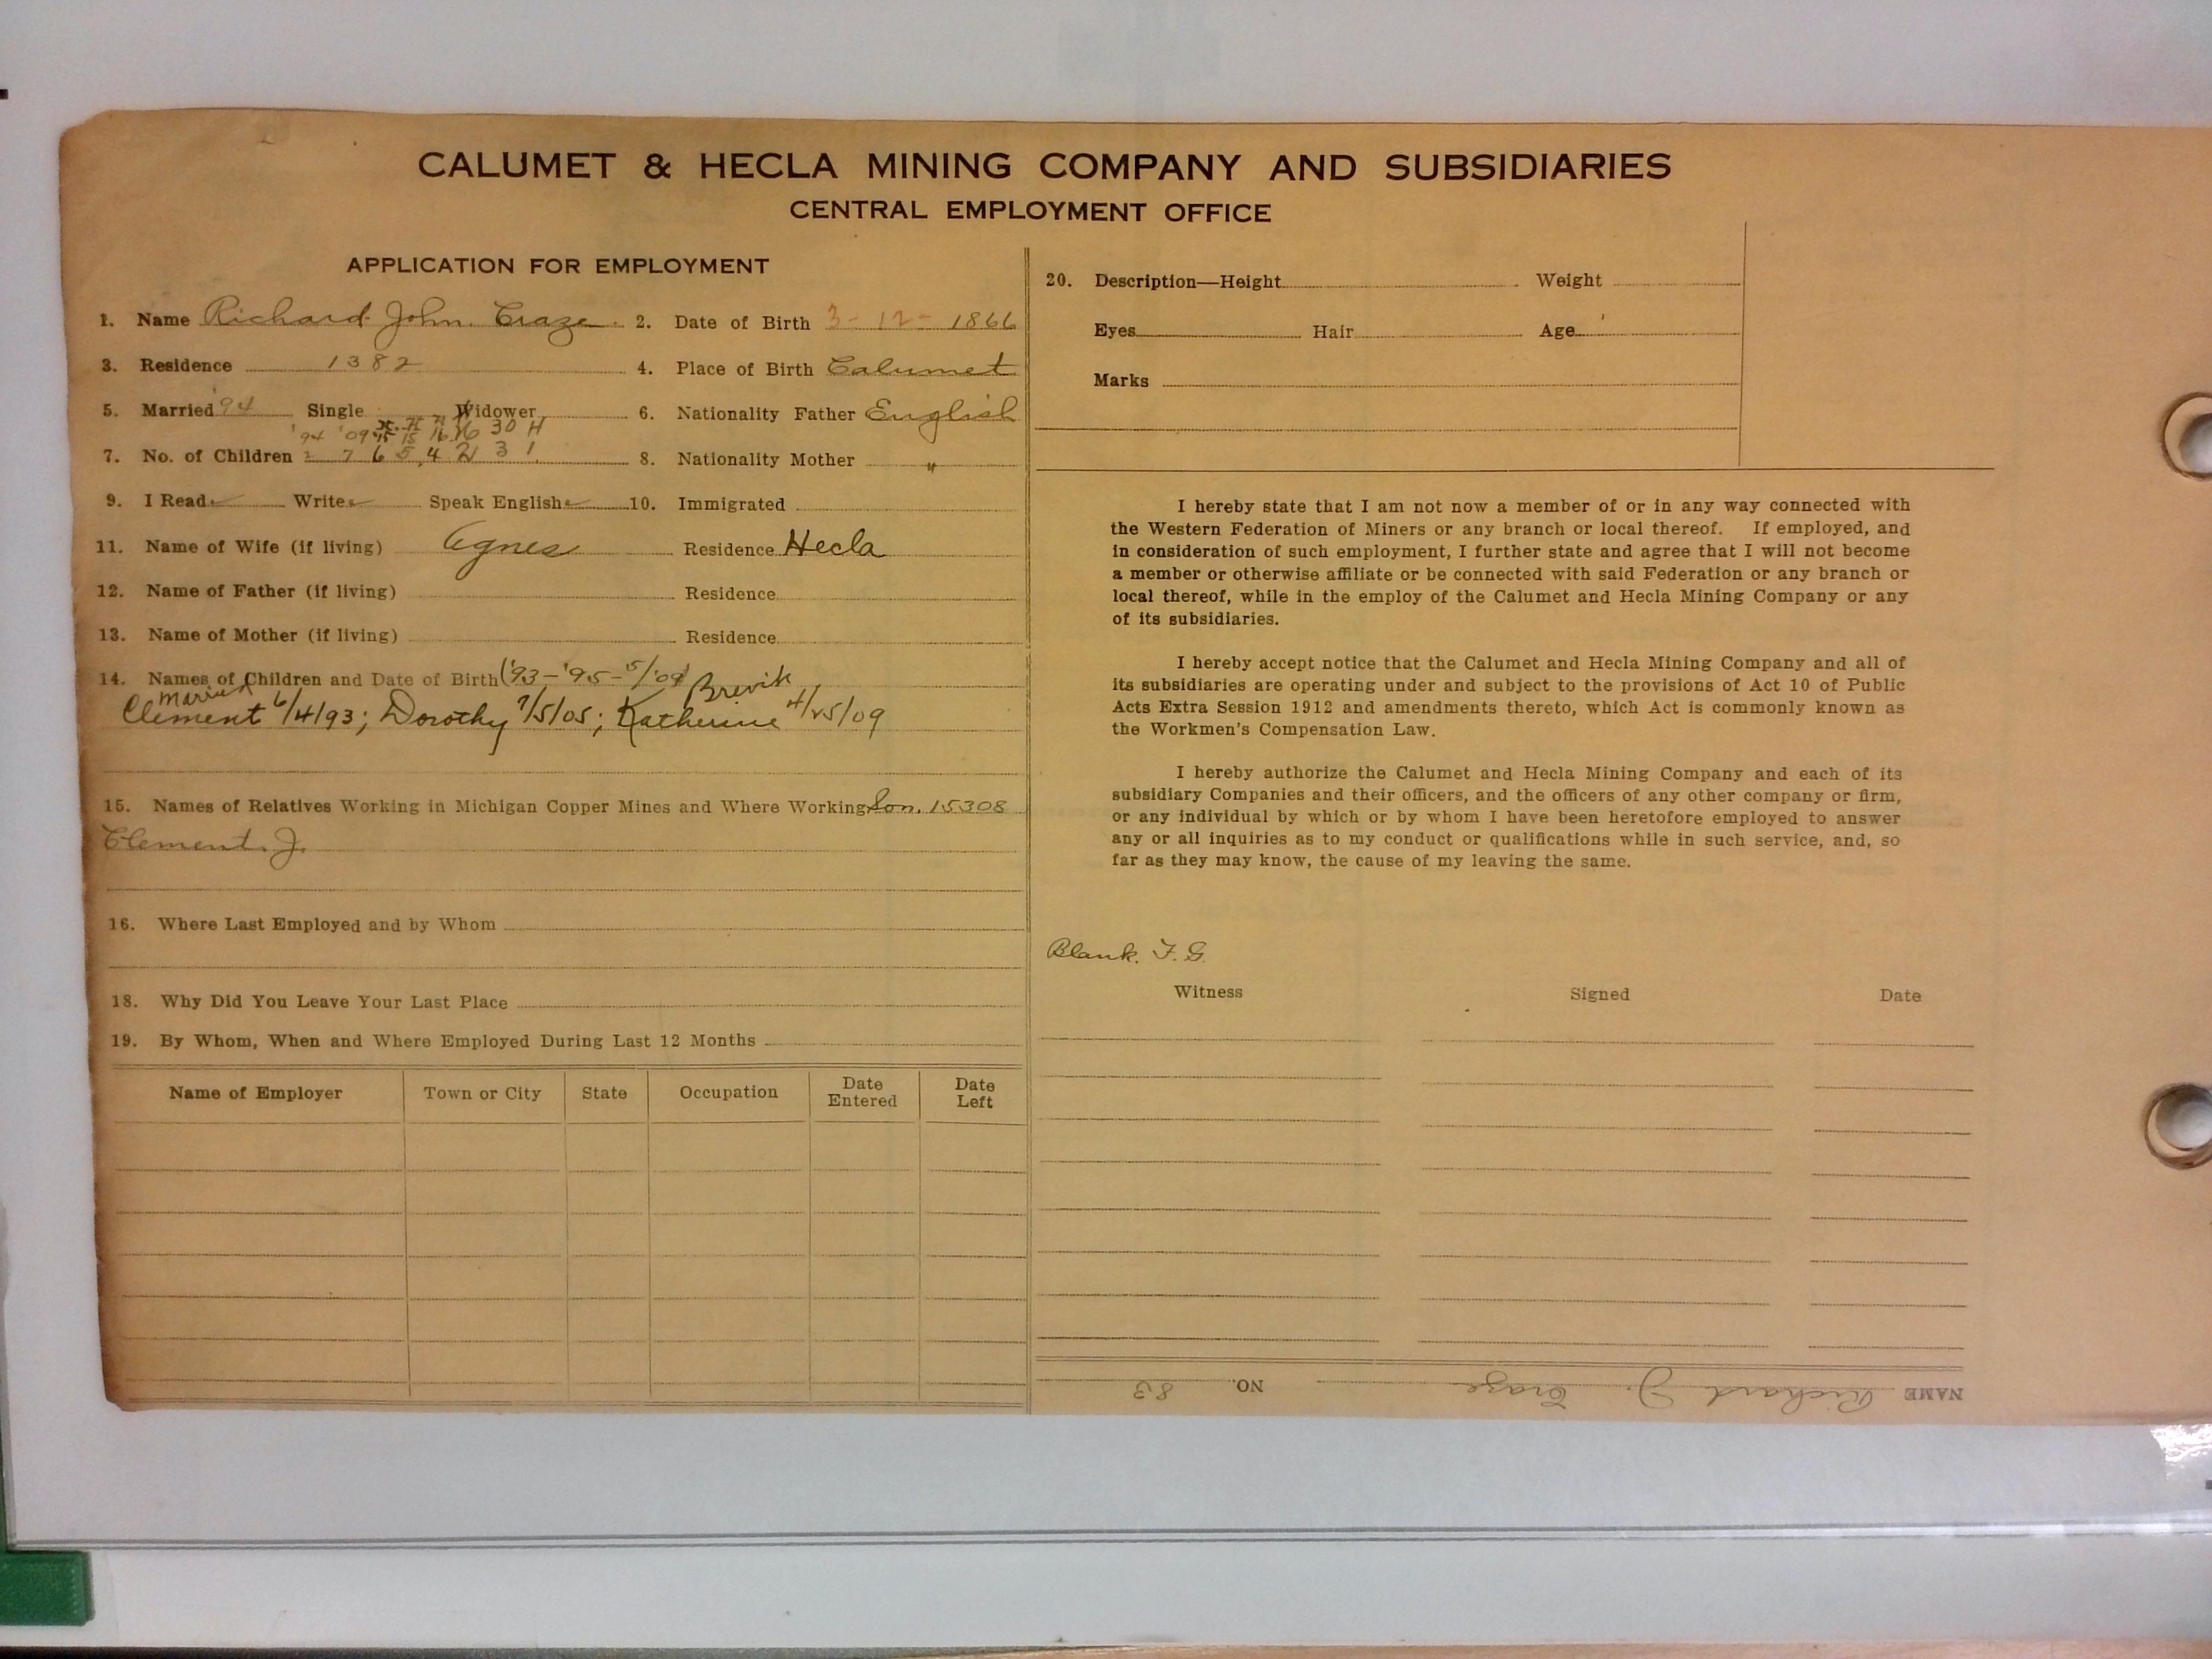 CALUMET & HECLA MINING COMPANY AND SUBSIDIARIES
CENTRAL EMPLOYMENT OFFICE
APPLICATION FOR EMPLOYMENT
1. Name Richard John Craze 2. Date of Birth 3-12-1866
3. Residence 1382 4. Place of Birth Calumet
5. Married 94 Single Widower 6. Nationality Father English
'94 '09 15 15 16 16 30 H
7. No. of Children 2 7 6 5, 4 2 3 1 8. Nationality Mother "
9. I Read ✓ Write ✓ Speak English ✓ 10. Immigrated
11. Name of Wife (if living) Agnes Residence Hecla
12. Name of Father (if living) Residence
13. Name of Mother (if living) Residence
14. Names of Children and Date of Birth ('93-'95-5/'09) Brevik
Married
Clement 6/4/93; Dorothy 7/5/05; Katherine 4/25/09
15. Names of Relatives Working in Michigan Copper Mines and Where Working Son. 15308
Clement. J.
16. Where Last Employed and by Whom
18. Why Did You Leave Your Last Place
19. By Whom, When and Where Employed During Last 12 Months
Name of Employer Town or City State Occupation Date Entered Date Left
20. Description—Height Weight
Eyes Hair Age
Marks
I hereby state that I am not now a member of or in any way connected with
the Western Federation of Miners or any branch or local thereof. If employed, and
in consideration of such employment, I further state and agree that I will not become
a member or otherwise affiliate or be connected with said Federation or any branch or
local thereof, while in the employ of the Calumet and Hecla Mining Company or any
of its subsidiaries.
I hereby accept notice that the Calumet and Hecla Mining Company and all of
its subsidiaries are operating under and subject to the provisions of Act 10 of Public
Acts Extra Session 1912 and amendments thereto, which Act is commonly known as
the Workmen's Compensation Law.
I hereby authorize the Calumet and Hecla Mining Company and each of its
subsidiary Companies and their officers, and the officers of any other company or firm,
or any individual by which or by whom I have been heretofore employed to answer
any or all inquiries as to my conduct or qualifications while in such service, and, so
far as they may know, the cause of my leaving the same.
Blank. F. G.
Witness Signed Date
NAME Richard J. Craze NO. 83